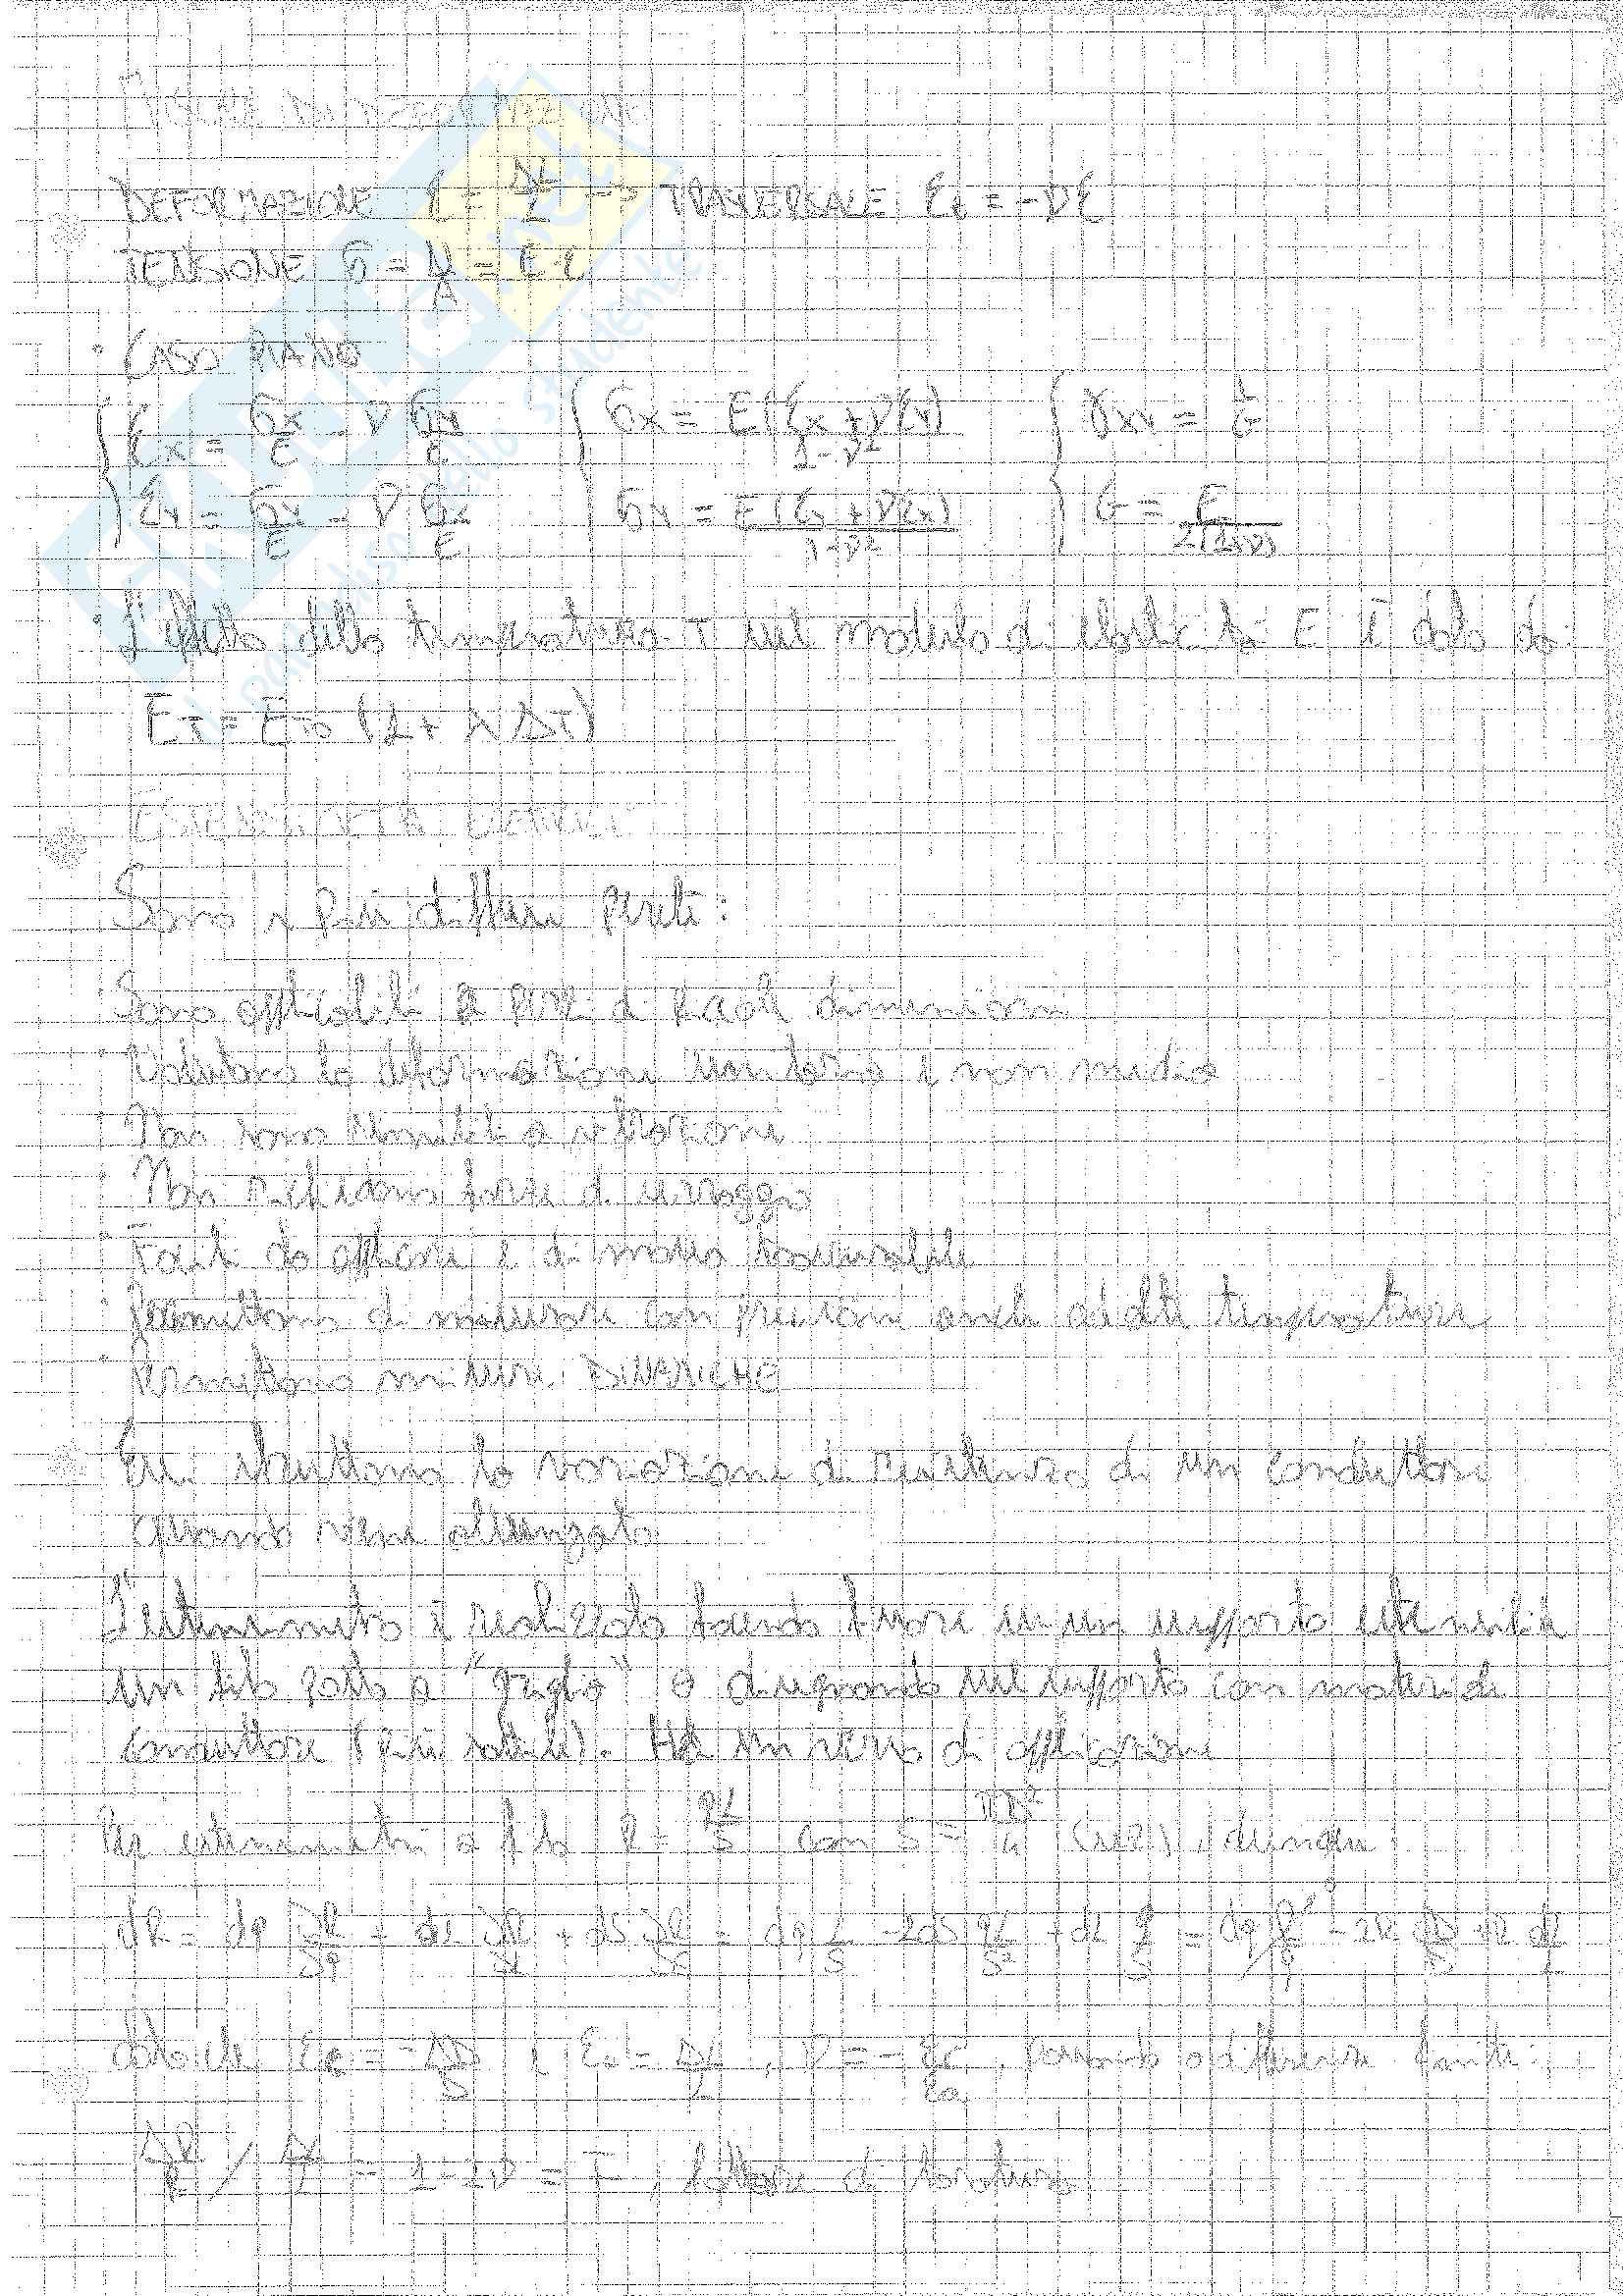 MISURE DI DEFORMAZIONE
DEFORMAZIONE ε = ΔL/L -> TRASVERSALE εt = -νε
TENSIONE σ = N/A = E ε
• CASO PIANO
{ εx = σx/E - ν σy/E { σx = E(εx + νεy)/(1-ν²) { γxy = τ/G
εy = σy/E - ν σx/E σy = E(εy + νεx)/(1-ν²) G = E/(2(1+ν))
• L'effetto della temperatura T sul modulo di elasticità E è dato da:
ET = ET0 (1 + λ ΔT)
ESTENSIMETRI ELETTRICI
Sono i più diffusi perché:
Sono applicabili a pezzi di piccole dimensioni
• Valutano la deformazione unitaria e non media
• Non sono sensibili a vibrazioni
• Non richiedono forze di serraggio
• Facili da applicare e di massa trascurabile
• Permettono di misurare con precisione anche ad alte temperature
• Permettono misure DINAMICHE
Essi sfruttano la variazione di resistenza di un conduttore
quando viene allungato
L'estensimetro è realizzato facendo su un supporto estensibile
un filo posto a "griglia" o disegnando sul supporto con materiale
conduttore (più sottile). Ha un verso di applicazione
Per estensimetri a filo R = ρL/S con S = πD²/4 dunque:
dR = dρ ∂R/∂ρ + dL ∂R/∂L + dS ∂R/∂S = dρ L/S - 2dS ρL/S² + dL ρ/S = dρ R/ρ - 2R dD/D + R dL/L
dato che εc = -ΔD/D e εa = ΔL/L, ν = - εc/εa, passando a differenze finite:
ΔR/R / ΔL/L = 1 - 2ν = F, fattore di taratura